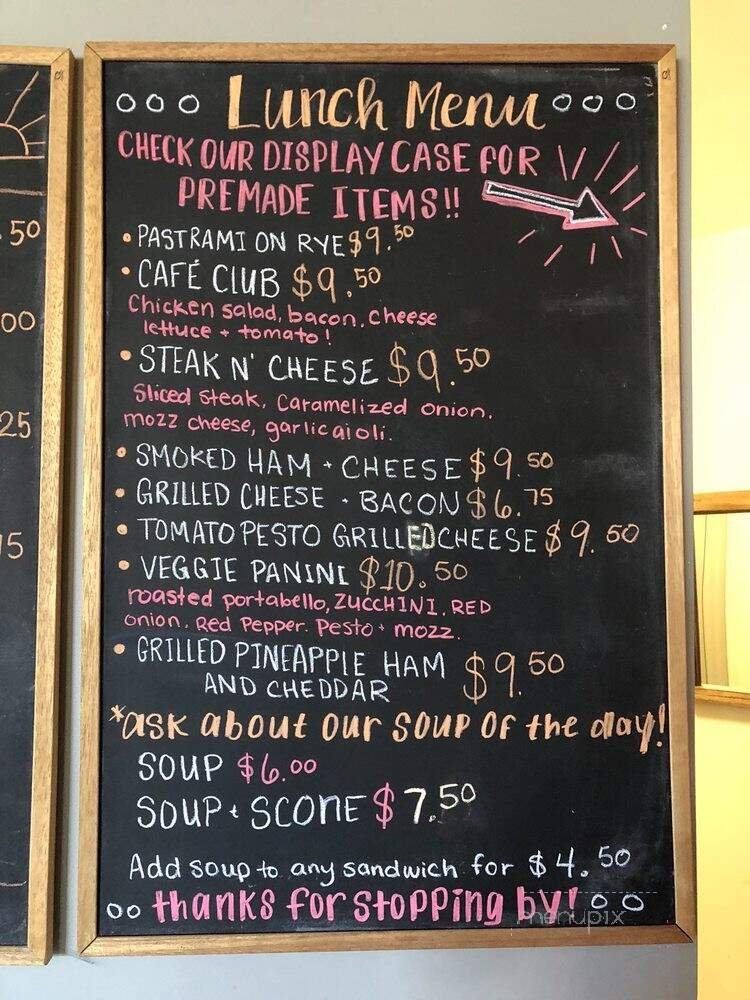 Lunch Menu
CHECK OUR DISPLAY CASE FOR
PREMADE ITEMS!!
• PASTRAMI ON RYE $9.50
• CAFÉ CLUB $9.50
Chicken salad, bacon, cheese
lettuce + tomato!
• STEAK N' CHEESE $9.50
Sliced steak, Caramelized onion,
mozz cheese, garlic aioli.
• SMOKED HAM + CHEESE $9.50
• GRILLED CHEESE + BACON $6.75
• TOMATO PESTO GRILLED CHEESE $9.50
• VEGGIE PANINI $10.50
roasted portabello, ZUCCHINI, RED
onion, Red Pepper, Pesto + mozz.
• GRILLED PINEAPPLE HAM
AND CHEDDAR $9.50
*ask about our soup of the day!
SOUP $6.00
SOUP + SCONE $7.50
Add soup to any sandwich for $4.50
thanks for stopping by!
menupix
.50
00
25
75